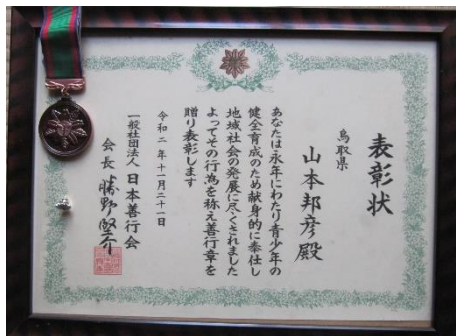 表彰状
鳥取県
山本邦彦殿
あなたは永年にわたり青少年の
健全育成のため献身的に奉仕し
地域社会の発展に尽くされました
よってその行為を称え善行章を
贈り表彰します
令和二年十一月二十一日
一般社団法人日本善行会
会長 勝野堅介